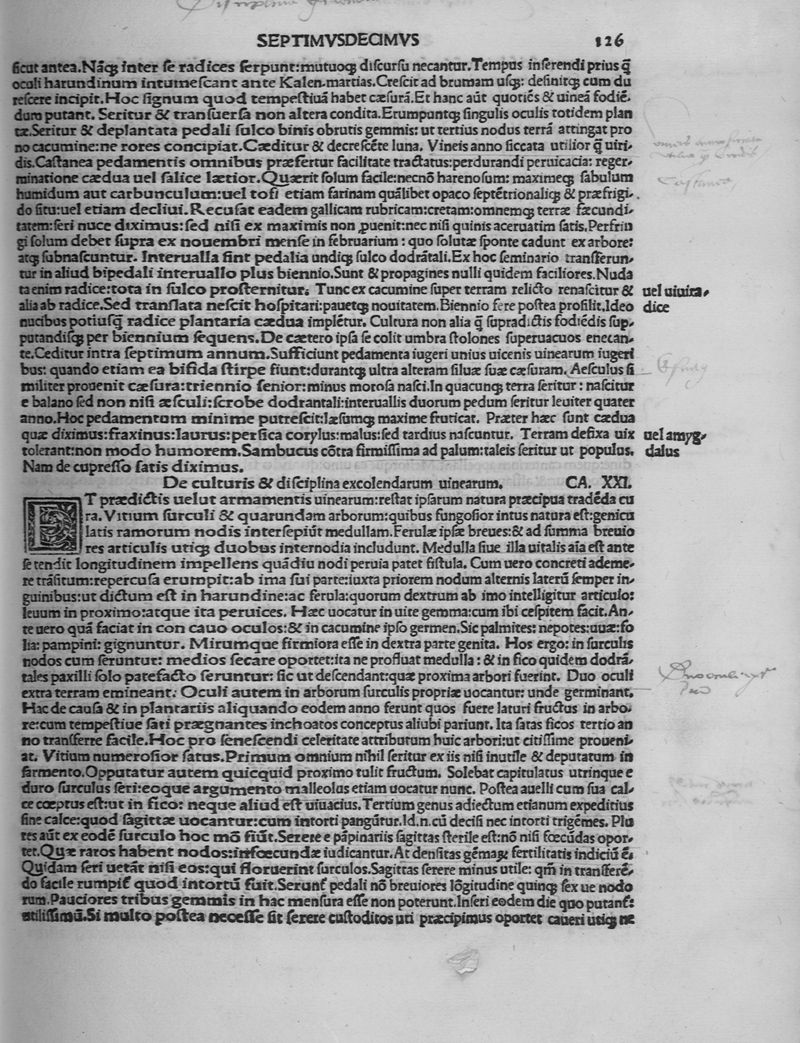 SEPTIMVSDECIMVS 126
ficut antea.Nāq; inter ſe radices ſerpunt:mutuoq; diſcurſu necantur.Tempus inſerendi prius q̄
oculi harundinum intumeſcant ante Kalen.martias.Creſcit ad brumam uſq;: definitq; cum du
reſcere incipit.Hoc ſignum quod tempeſtiuā habet cæſurā.Et hanc aūt quotiēs & uineā fodiē
duro putant. Seritur & tranſuerſa non altera condita.Erumpuntq; ſingulis oculis totidem plan
tæ.Seritur & deplantata pedali ſulco binis obrutis gemmis: ut tertius nodus terrā attingat pro
no cacumine:ne rores concipiat.Cæditur & decreſcēte luna. Vineis anno ſiccata utilior q̄ uiri/
dis.Caſtanea pedamentis omnibus præfertur facilitate tractatus:perdurandi peruicacia: reger/
minatione cædua uel ſalice lætior.Quærit ſolum facile:necnō harenoſum: maximeq; ſabulum
humidum aut carbunculum:uel tofi etiam farinam quālibet opaco ſeptētrionaliq; & præfrigi/
do ſitu:uel etiam decliui.Recuſat eadem gallicam rubricam:cretam:omnemq; terræ fæcundi/
tatem:ſeri nuce diximus:ſed niſi ex maximis non ꝓuenit:nec niſi quinis aceruatim ſatis.Perfrin
gi ſolum debet ſupra ex nouembri menſe in februarium : quo ſolutæ ſponte cadunt ex arbore:
atq; ſubnaſcuntur. Interualla ſint pedalia undiq; ſulco dodrātali.Ex hoc ſeminario tranſferun/
tur in aliud bipedali interuallo plus biennio.Sunt & propagines nulli quidem faciliores.Nuda
ta enim radice:tota in ſulco proſternitur: Tunc ex cacumine ſuper terram relicto renaſcitur &
alia ab radice.Sed tranſlata neſcit hoſpitari:pauetq; nouitatem.Biennio fere poſtea profilit.Ideo
nucibus potiuſq̄ radice plantaria cædua implētur. Cultura non alia q̄ ſupradictis fodiēdis ſup/
putandiſq; per biennium ſequens.De cætero ipſa ſe colit umbra ſtolones ſuperuacuos enecan/
te.Ceditur intra ſeptimum annum.Sufficiunt pedamenta iugeri unius uicenis uinearum iugeri
bus: quando etiam ea bifida ſtirpe fiunt:durantq; ultra alteram ſiluæ ſuæ cæſuram. Aeſculus ſi
militer prouenit cæſura:triennio ſenior:minus moroſa naſci.In quacunq; terra ſeritur : naſcitur
e balano ſed non niſi æſculi:ſcrobe dodrantali:interuallis duorum pedum ſeritur leuiter quater
anno.Hoc pedamentum minime putreſcit:læſumq; maxime fruticat. Præter hæc ſunt cædua
quæ diximus:fraxinus:laurus:perſica corylus:malus:ſed tardius naſcuntur. Terram defixa uix
tolerant:non modo humorem.Sambucus cōtra firmiſſima ad palum:taleis ſeritur ut populus.
Nam de cupreſſo ſatis diximus.
uel uiuira/
dice
uel amyg/
dalus
De culturis & diſciplina excolendarum uinearum. CA. XXI.
ET prædictis uelut armamentis uinearum:reſtat ipſarum natura præcipua tradēda cu
ra.Vitium ſurculi & quarundam arborum:quibus fungoſior intus natura eſt:genicu
latis ramorum nodis interſepiūt medullam.Ferulæ ipſæ breues:& ad ſumma breuio
res articulis utiq; duobus internodia includunt. Medulla ſiue illa uitalis aīa eſt ante
ſe tendit longitudinem impellens quādiu nodi peruia patet fiſtula. Cum uero concreti ademe/
re trāſitum:repercuſa erumpit:ab ima ſui parte:iuxta priorem nodum alternis laterū ſemper in/
guinibus:ut dictum eſt in harundine:ac ferula:quorum dextrum ab imo intelligitur articulo:
leuum in proximo:atque ita peruices. Hæc uocatur in uite gemma:cum ibi ceſpitem facit.An/
te uero quā faciat in con cauo oculos:& in cacumine ipſo germen.Sic palmites: nepotes:uuæ:fo
lia: pampini: gignuntur. Mirumque firmiora eſſe in dextra parte genita. Hos ergo: in ſurculis
nodos cum ſeruntur: medios ſecare oportet:ita ne profluat medulla : & in fico quidem dodrā/
tales paxilli ſolo patefacto ſeruntur: ſic ut deſcendant:quæ proxima arbori fuerint. Duo oculi
extra terram emineant. Oculi autem in arborum ſurculis propriæ uocantur: unde germinant.
Hac de cauſa & in plantariis aliquando eodem anno ferunt quos fuere laturi fructus in arbo/
re:cum tempeſtiue ſati prægnantes inchoatos conceptus aliubi pariunt. Ita ſatas ficos tertio an
no tranſferre facile.Hoc pro ſeneſcendi celeritate attributum huic arbori:ut citiſſime proueni/
at. Vitium numeroſior ſatus.Primum omnium nihil ſeritur ex iis niſi inutile & deputatum in
ſarmento.Opputatur autem quicquid proximo tulit fructum. Solebat capitulatus utrinque e
duro ſurculus ſeri:eoque argumento malleolus etiam uocatur nunc. Poſtea auelli cum ſua cal/
ce cœptus eſt:ut in fico: neque aliud eſt uiuacius.Tertium genus adiectum etianum expeditius
ſine calce:quod ſagittæ uocantur:cum intorti pangūtur.Id.n.cū deciſi nec intorti trigēmes. Plu
res aūt ex eodē ſurculo hoc mō fiūt.Serere e pāpinariis ſagittas ſterile eſt:nō niſi fœcūdas opor/
tet.Quæ raros habent nodos:infœcundæ iudicantur.At denſitas gēmaꝝ fertilitatis indiciū ē.
Quidam ſeri uetāt niſi eos:qui floruerint ſurculos.Sagittas ſerere minus utile: qm̄ in tranſferē/
do facile rumpit quod intortū fuit.Serunt pedali nō breuiores lōgitudine quinq; ſex ue nodo
rum.Pauciores tribus gemmis in hac menſura eſſe non poterunt.Inſeri eodem die quo putant:
utiliſſimū.Si multo poſtea neceſſe ſit ſerere cuſtoditos uti præcipimus oportet caueri utiq; ne